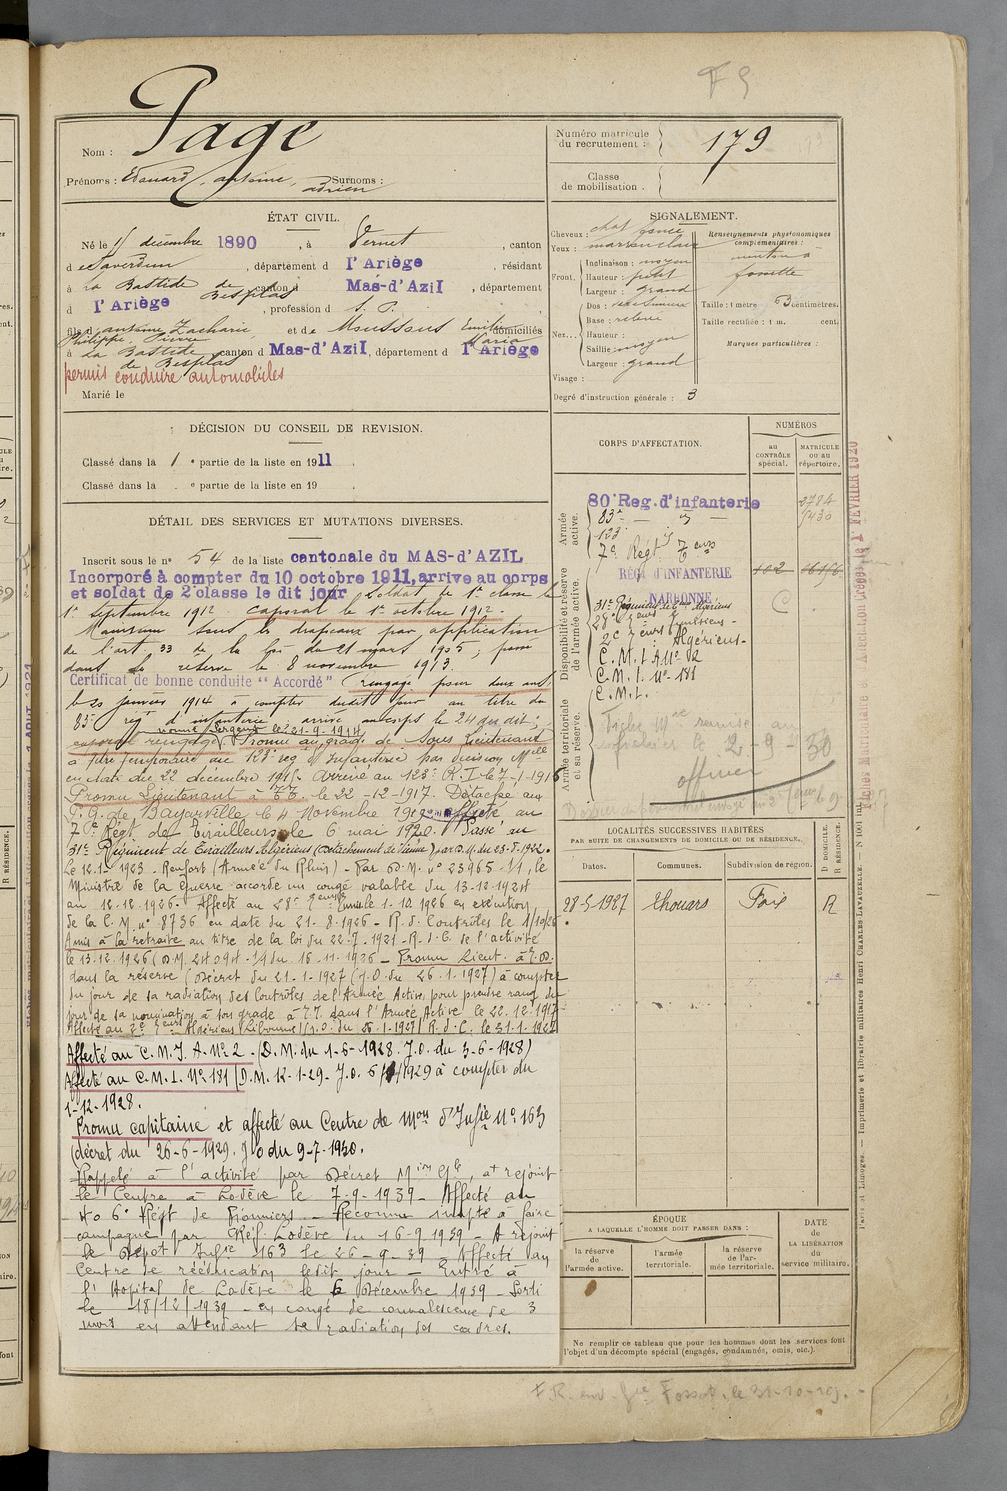 F 9
Nom : Page
Prénoms : Edouard, antoine, adrien Surnoms :
Numéro matricule du recrutement : 179
Classe de mobilisation .
ÉTAT CIVIL.
Né le 15 décembre 1890 , à Vernet , canton
d e Saverdun , département d l'Ariège , résidant
à La Bastide de Besplas canton d Mas-d'Azil , département
d l'Ariège , profession d S. P. ,
fils d' antoine Zacharie Philippe Pierre et de Moussous Emilie Maria domiciliés
à La Bastide de Besplas canton d Mas-d'Azil, département d l'Ariège
permis conduire automobiles
Marié le
SIGNALEMENT.
Cheveux : chat foncé
Yeux : marron clair
Front. Inclinaison : moyen
Hauteur : petit
Largeur : grand
Nez... Dos :
Base : relevé
Hauteur :
Saillie : moyen
Largeur : grand
Visage :
Renseignements physionomiques complémentaires :
menton à fossette
Taille : 1 mètre 63 centimètres.
Taille rectifiée : 1 m. cent.
Marques particulières :
Degré d'instruction générale : 3
DÉCISION DU CONSEIL DE REVISION.
Classé dans la 1 e partie de la liste en 1911 .
Classé dans la e partie de la liste en 19 .
DÉTAIL DES SERVICES ET MUTATIONS DIVERSES.
Inscrit sous le n° 54 de la liste cantonale du MAS-d'AZIL
Incorporé à compter du 10 octobre 1911, arrive au corps
et soldat de 2e classe le dit jour Soldat de 1e classe le
1e septembre 1912. caporal le 1e octobre 1912.
Maintenu sous les drapeaux par application
de l'art 33 de la loi du 21 mars 1905 ; passé
dans la réserve le 8 novembre 1913.
Certificat de bonne conduite "Accordé" rengagé pour deux ans
le 20 janvier 1914 à compter dudit jour au titre du
83e reg t d'infanterie arrivé au corps le 24 du dit ;
nommé Sergent le 21-9-1914
caporal rengagé. Promu au grade de Sous Lieutenant
à titre temporaire au 123e reg d'Infanterie par décision Mlle
en date du 22 décembre 1915. Arrivé au 123e R.I le 7-1-1916
Promu Lieutenant à TT. le 22-12-1917. Détaché au
P.G. de Bayarville le 4 Novembre 1919 affecté au
7e Régt de Tirailleurs le 6 mai 1920. Passé au
31e Régiment de Tirailleurs Algériens (Détachement de Vienne) par D.M. du 23-8-1922.
Le 12-1-1923 - Renfort (Armée du Rhin) - Par D.M. n° 23965-11, le
Ministre de la Guerre accorde un congé valable du 13-12-1924
au 12.12.1926. Affecté au 28e Tirailleurs le 1-10.1926 en exécution
de la C.M. n° 8736 en date du 21-8-1926 - R.d. Contrôles le 1/10/26
Admis à la retraite au titre de la loi du 22-7-1921 - R.d.C. de l'activité
le 13.12.1926 (D.M. du 15-11-1926 - Promu Lieut. à T.D.
dans la réserve (Décret du 21-1-1927 (J.O. du 26.1.1927) à compter
du jour de sa radiation des Contrôles de l'Armée Active, pour prendre rang du
jour de sa nomination à son grade à T.T. dans l'Armée Active le 22.12.1917
Affecté au 2e Tirs Algériens Libourne (J.O. du 1927) R.d.C. le 31-1-1927
Affecté au C.M.I. A. N° 2 - (D.M. du 1-6-1928. J.O. du 3-6-1928)
Affecté au C.M.I. N° 181 (D.M. 12-1-29 - J.O. 1929 à compter du
1-12-1928.
Promu capitaine et affecté au Centre de Mon d'Infie N° 163
(décret du 26-6-1929. JO du 9-7-1930.
Rappelé à l'activité par décret Min Gle, at rejoint
le Centre à Lodève le 7-9-1939 - Affecté au
406e Régt de Pionniers - Reconnu inapte à faire
campagne par Réf. Lodève du 16-9-1939 - A rejoint
le dépôt Infie 163 le 26-9-39 - Affecté au
Centre de rééducation ledit jour - Entré à
l'Hôpital de Lodève le 6 Décembre 1939 - Sorti
le 18/12/1939 - en congé de convalescence de 3
mois en attendant sa radiation des cadres.
CORPS D'AFFECTATION.
NUMÉROS
au CONTRÔLE spécial.
MATRICULE ou au répertoire.
Armée active.
80e Reg. d'infanterie 2784
83e — d° — 5430
123 — d°
7e Régt Tirs
Disponibilité et réserve de l'armée active.
RÉGt d'INFANTERIE NARBONNE 102 16156
31e Régiment de Tirs Algériens C
28e Tirs Tunisiens -
2e Tirs Algériens -
C.M.I A N° 2
C.M.I. N° 181
C.M.I.
Armée territoriale et sa réserve.
Fiche Mle remise au
officier le 2-9-30
officier
LOCALITÉS SUCCESSIVES HABITÉES
PAR SUITE DE CHANGEMENTS DE DOMICILE OU DE RÉSIDENCE.
Dates. Communes. Subdivision de région. D DOMICILE. R RÉSIDENCE.
28-5-1927 Thouars Foix R
ÉPOQUE
A LAQUELLE L'HOMME DOIT PASSER DANS :
la réserve de l'armée active.
l'armée territoriale.
la réserve de l'armée territoriale.
DATE de LA LIBÉRATION du service militaire.
Ne remplir ce tableau que pour les hommes dont les services font l'objet d'un décompte spécial (engagés, condamnés, omis, etc.).
Paris et Limoges. — Imprimerie et librairie militaires Henri CHARLES-LAVAUZELLE. — N° 1001 int.